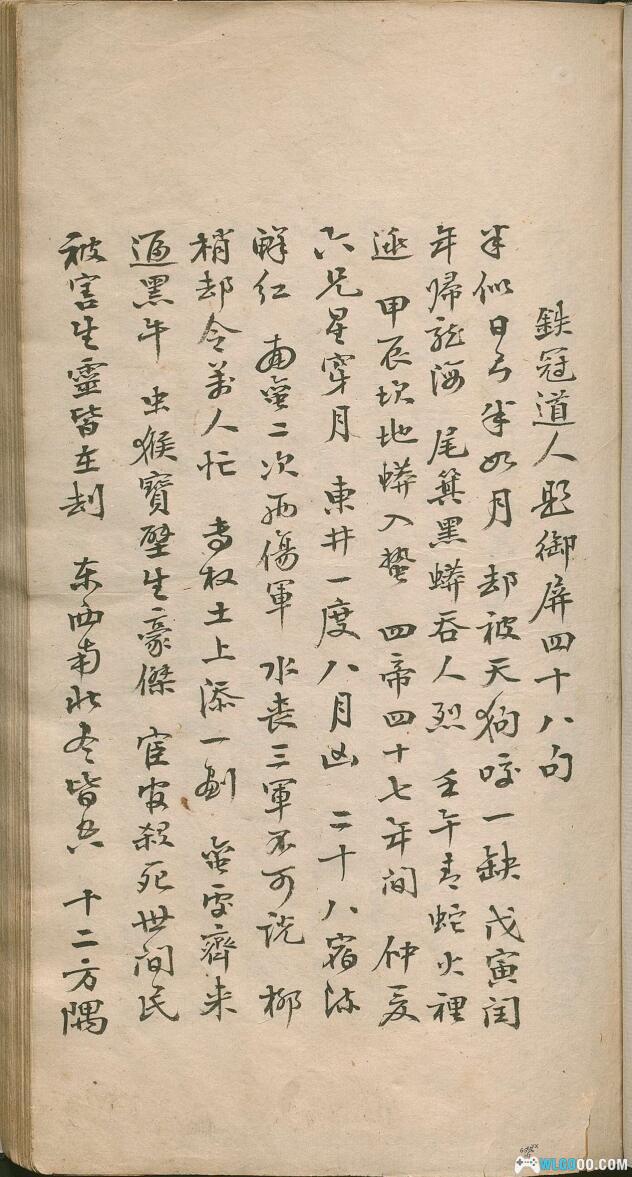 鉄冠道人題御屏四十八句
半似日兮半如月 却被天狗咬一缺 戊寅閏
年帰龍海 尾箕黑蟒吞人烈 壬午青蛇火裡
逃 甲辰坎地蟒入蟄 四帝四十七年間 仲夏
六兄星穿月 東井一度八月凶 二十八宿
鮮红 南蛮二次两傷軍 水丧三軍不可说 柳
梢却令萬人忙 专权土上添一剑 蛮夷齊来
逼黑牛 虫猴寶壁生豪傑 宦官殺死世间民
被害生靈皆在刦 东西南北尽皆兵 十二方隅
WLGOOO.COM